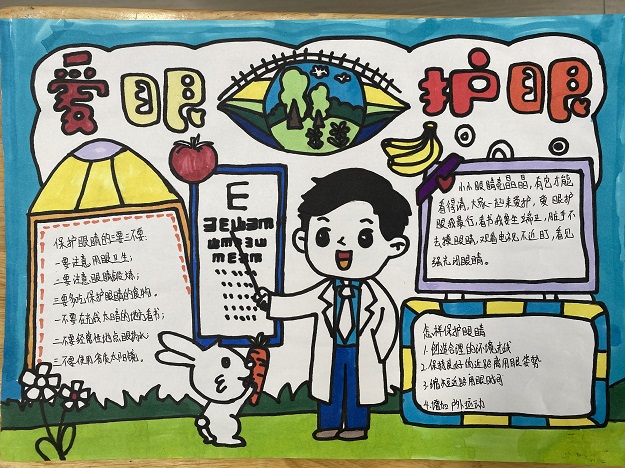 爱眼 护眼
保护眼睛的三要三不要.
一要注意用眼卫生;
二要注意眼睛锻炼;
三要多吃保护眼睛的食物.
一不要在光线太暗的地方看书;
二不要经常性地点眼药水;
三不要使用劣质太阳镜.
E
小小眼睛亮晶晶,有它才能
看得清,大家一起来爱护,爱眼护
眼我最行,看书我要坐端正,脏手不
去揉眼睛,观看电视不近盯,看见
强光闭眼睛.
怎样保护眼睛
1.创造合理的环境光线
2.保持良好的近距离用眼姿势
3.缩短近距用眼时间
4.增加户外运动